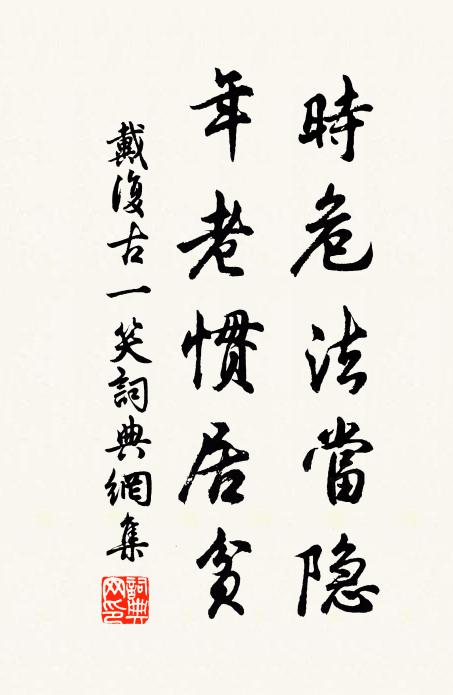 時危法當隐
年老慣居貧
戴復古一笑詞典網集
詞典网印